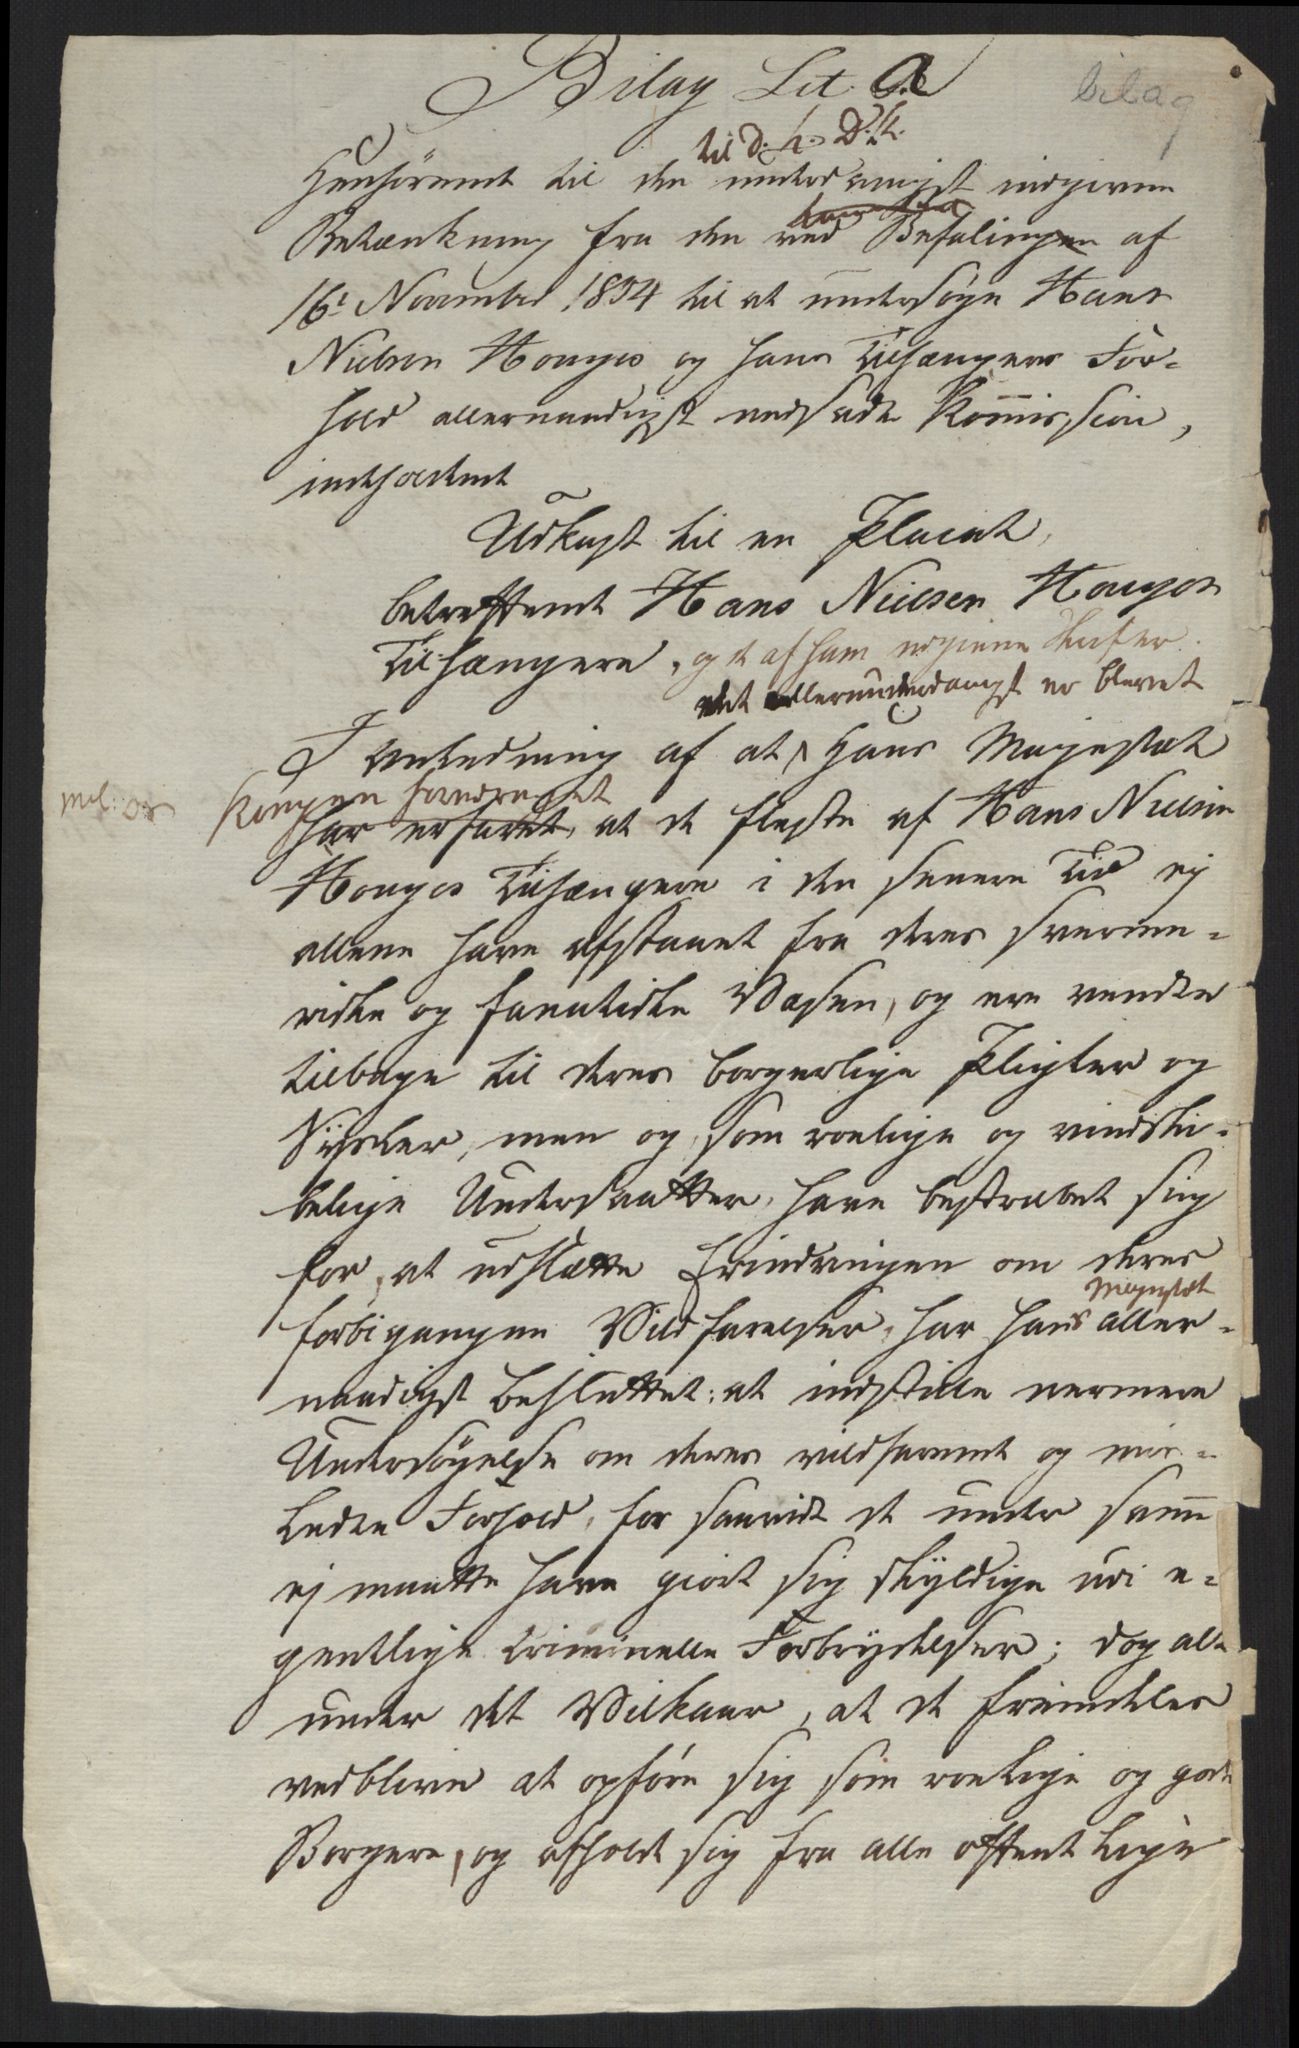 Bilag Lit. A
bilag
til d. k. D. K.
Henhörende til den underdanigst indgivne
Betænkning fra den ved Befalingen af
16de November 1804 til at undersöge Hans
Nielsen Houges og hans Tilhængeres For-
hold allernaadigst nedsadte Kommission,
indholdende
Udkast til en Placat,
betreffende Hans Nielsen Houges
Tilhængere, og de af ham udgivne Skrifter.
det allerunderdanigst er blevet
I Anledning af at Hans Majestæt
Kongen foredraget
har erfaret, at de fleste af Hans Nielsen
Houges Tilhængere i den senere Tid ej
allene have afstaaet fra deres sværme-
riske og fanatiske Væsen, og ere vendte
tilbage til deres borgerlige Pligter og
Sysler, men og, som roelige og vindski-
belige Undersaatter, have bestræbet sig
for, at udslætte Erindringen om deres
Majestæt
forbigangne Vildfarelser, har Hans aller-
naadigst besluttet: at indstille nærmere
Undersögelse om deres vildfarende og mis-
ledte Forhold, for saavidt de under samme
ej maatte have giort sig skyldige udi e-
gentlige criminelle Forbrydelser; dog alt
under det Vilkaar, at de fremdeles
vedblive at opföre sig som roelige og gode
Borgere, og afholde sig fra alle offentlige